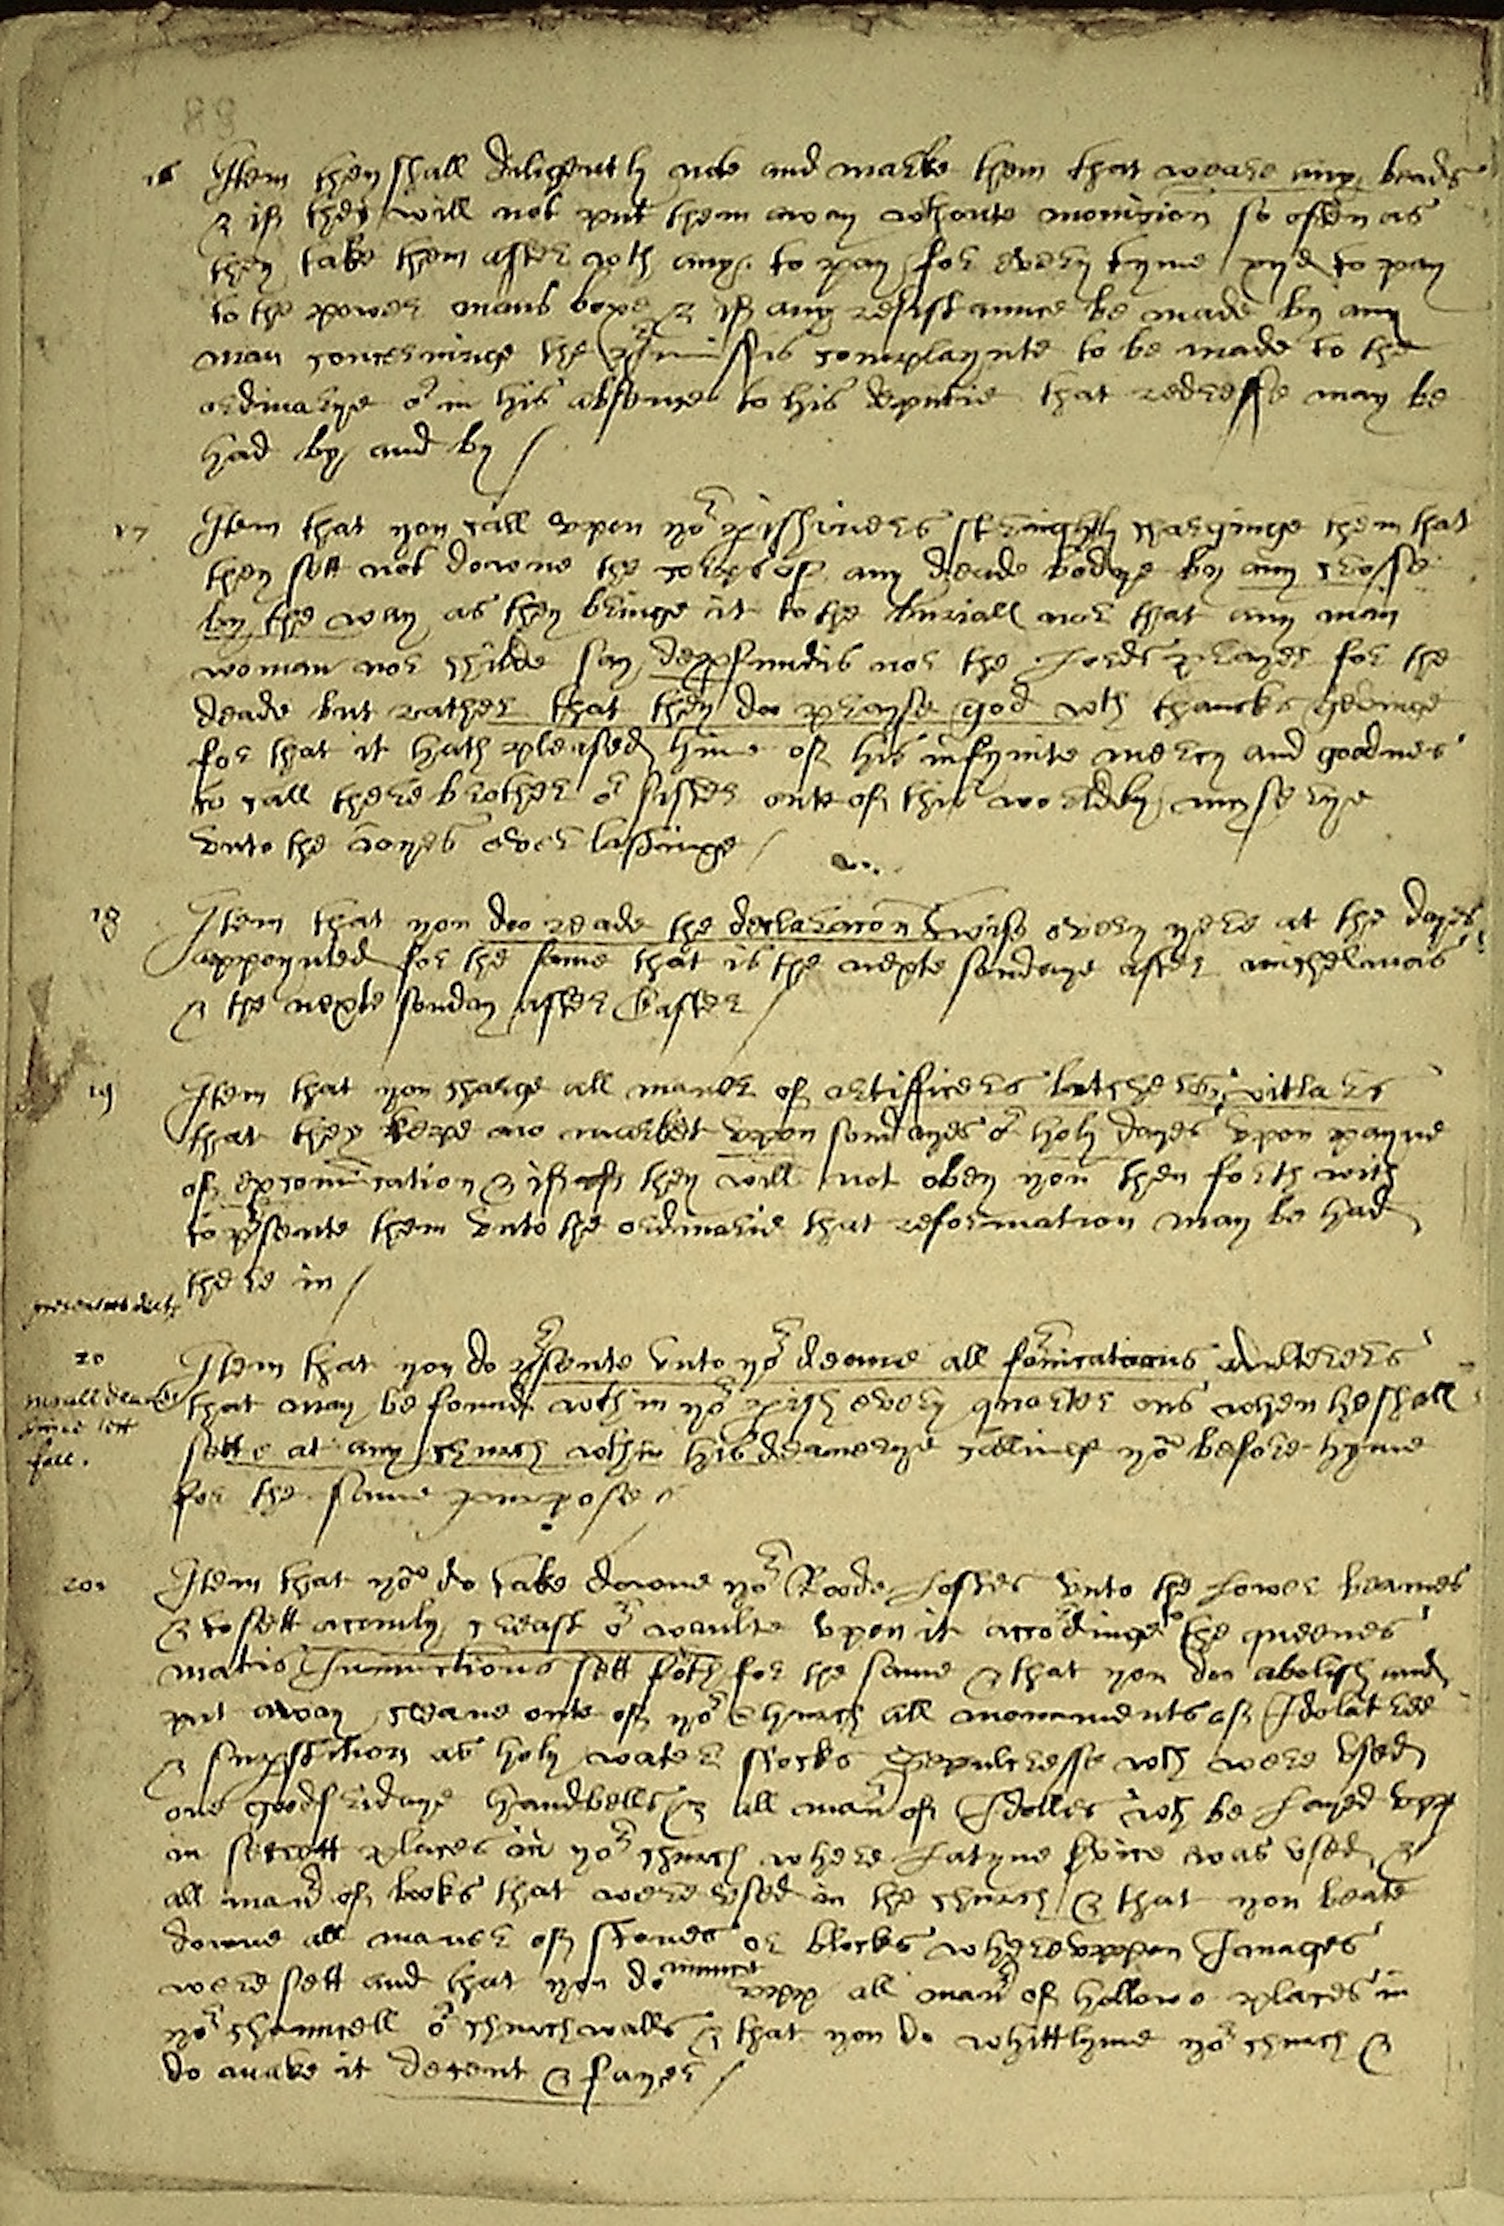 16 Item they shall diligently note and marke them that weare any beads
& if they will not put them away wthoute monicion so often as
they take them after wth any. to pay for every tyme xijd to pay
to the power mans boxe & if any resistaunce be made by any
man concerninge the pmissis complaynte to be made to the
ordinarye or in his absence to his deputie that redresse may be
had by and by /
17 Item that you call vpon yor pishiners streightly charginge them that
they sett not downe the corps of any deade bodye by any crosse
by the way as they bringe it to the buriall nor that any man
woman nor childe say deprfundis nor the Lords prayer for the
deade but rather that they doo prayse god wth thancks gevinge
for that it hath pleased hime of his infynite mercy and goodnes
to call there brother or sister oute of this worldly myserye
vnto the Joyes ever lastinge /
18 Item that you doo reade the declaracon twise every yere at the dayes
appoynted for the same that is the nexte sondaye after michelmas
& the nexte sonday after Easter /
19 Item that you charge all maner of artifficers butchers vitlars
that they kepe no market vpon sondayes or holy dayes vpon payne
of excomication & if they will not obey you then forth with
to psente them vnto the ordinarie that reformation may be had
there in /
20 Item that you do psente vnto yor deane all fornicatours adulterers
that may be founde wthin yor pish every quarter ons when he shall
sette at any church wthin his deanerye callinge yor before hyme
for the same purpose
fall.
201 Item that yor do take downe yor Roode Loftes vnto the Lower beames
& to sett a comly creast or vaulte vpon it accordinge the queenes
matis Iniunctions sett foth for the same & that you doo abolish and
put away cleane oute of yor church all monuments of Idolatree
& supstition as holy water stocks sepulcresse wch were vsed
one goodfridaye handbells & all manr of Idolles wch be Layed vpp
in secrett places in yor church where Latyne svice was vsed &
all manr of books that were vsed in the church & that you beate
downe all maner of stones or blocks wherevppon Images
were sett and that you do mure vpp all manr of hollowe places in
yor chauncell or church walls & that you do whittlyme yor church &
do make it decent & fayer /